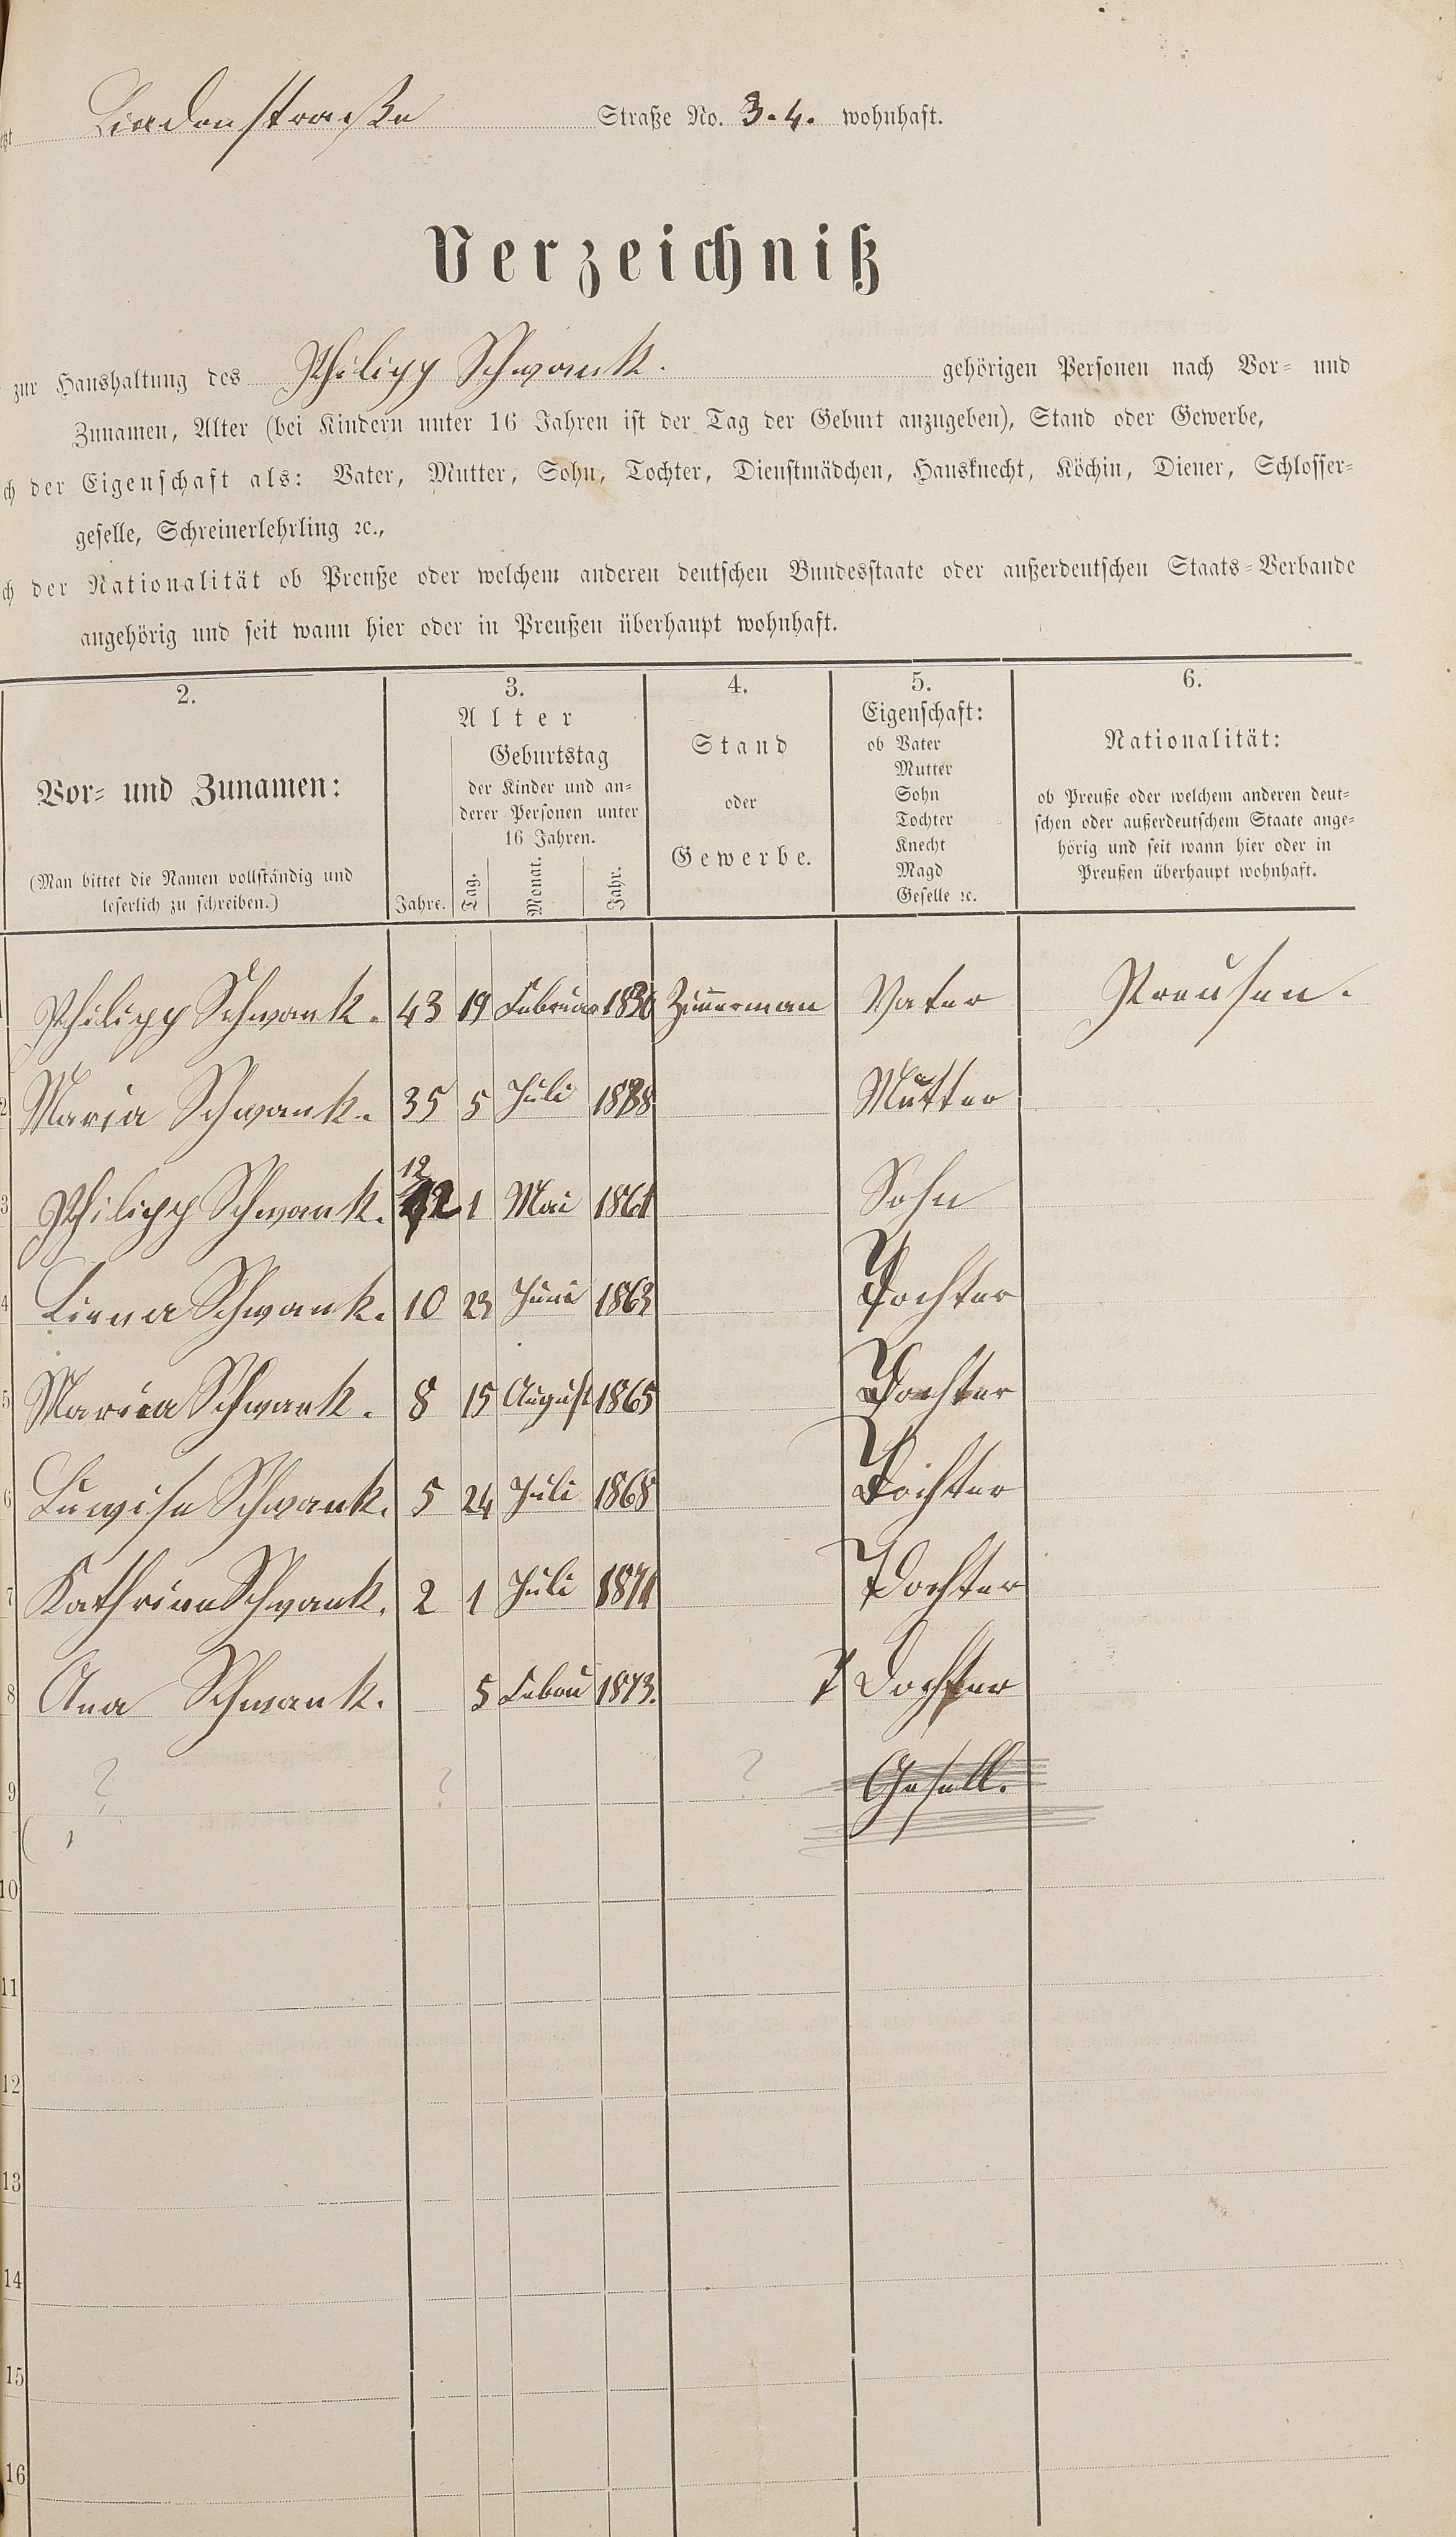 Lindenstraße Straße No. 3.4. wohnhaft.
Verzeichniß
zur Haushaltung des Philipp Schwank. gehörigen Personen nach Vor- und
Zunamen, Alter (bei Kindern unter 16 Jahren ist der Tag der Geburt anzugeben), Stand oder Gewerbe,
der Eigenschaft als: Vater, Mutter, Sohn, Tochter, Dienstmädchen, Hausknecht, Köchin, Diener, Schlosser-
geselle, Schreinerlehrling ꝛc.,
der Nationalität ob Preuße oder welchem anderen deutschen Bundesstaate oder außerdeutschen Staats-Verbande
angehörig und seit wann hier oder in Preußen überhaupt wohnhaft.
2.
Vor- und Zunamen:
(Man bittet die Namen vollständig und
leserlich zu schreiben.)
3.
Alter
Geburtstag
der Kinder und an-
derer Personen unter
16 Jahren.
Jahre. Tag. Monat. Jahr.
4.
Stand
oder
Gewerbe.
5.
Eigenschaft:
ob Vater
Mutter
Sohn
Tochter
Knecht
Magd
Geselle ꝛc.
6.
Nationalität:
ob Preuße oder welchem anderen deut-
schen oder außerdeutschem Staate ange-
hörig und seit wann hier oder in
Preußen überhaupt wohnhaft.
Philipp Schwank. 43 19 Februar 1830 Zim̄erman Vater Preusen.
2 Maria Schwank. 35 5 Juli 1838 Mutter
12
3 Philipp Schwank. 12 1 Mai 1861 Sohn
4 Liena Schwank. 10 23 Juni 1863 Tochter
5 Mariea Schwank. 8 15 August 1865 Tochter
6 Luwise Schwank. 5 24 Juli 1868 Tochter
7 Kathrina Schwank. 2 1 Juli 1871 Tochter
8 Ana Schwank. 5 Febru 1873. T Dochter
9 ? ? ? Gesell.
10
11
12
13
14
15
16